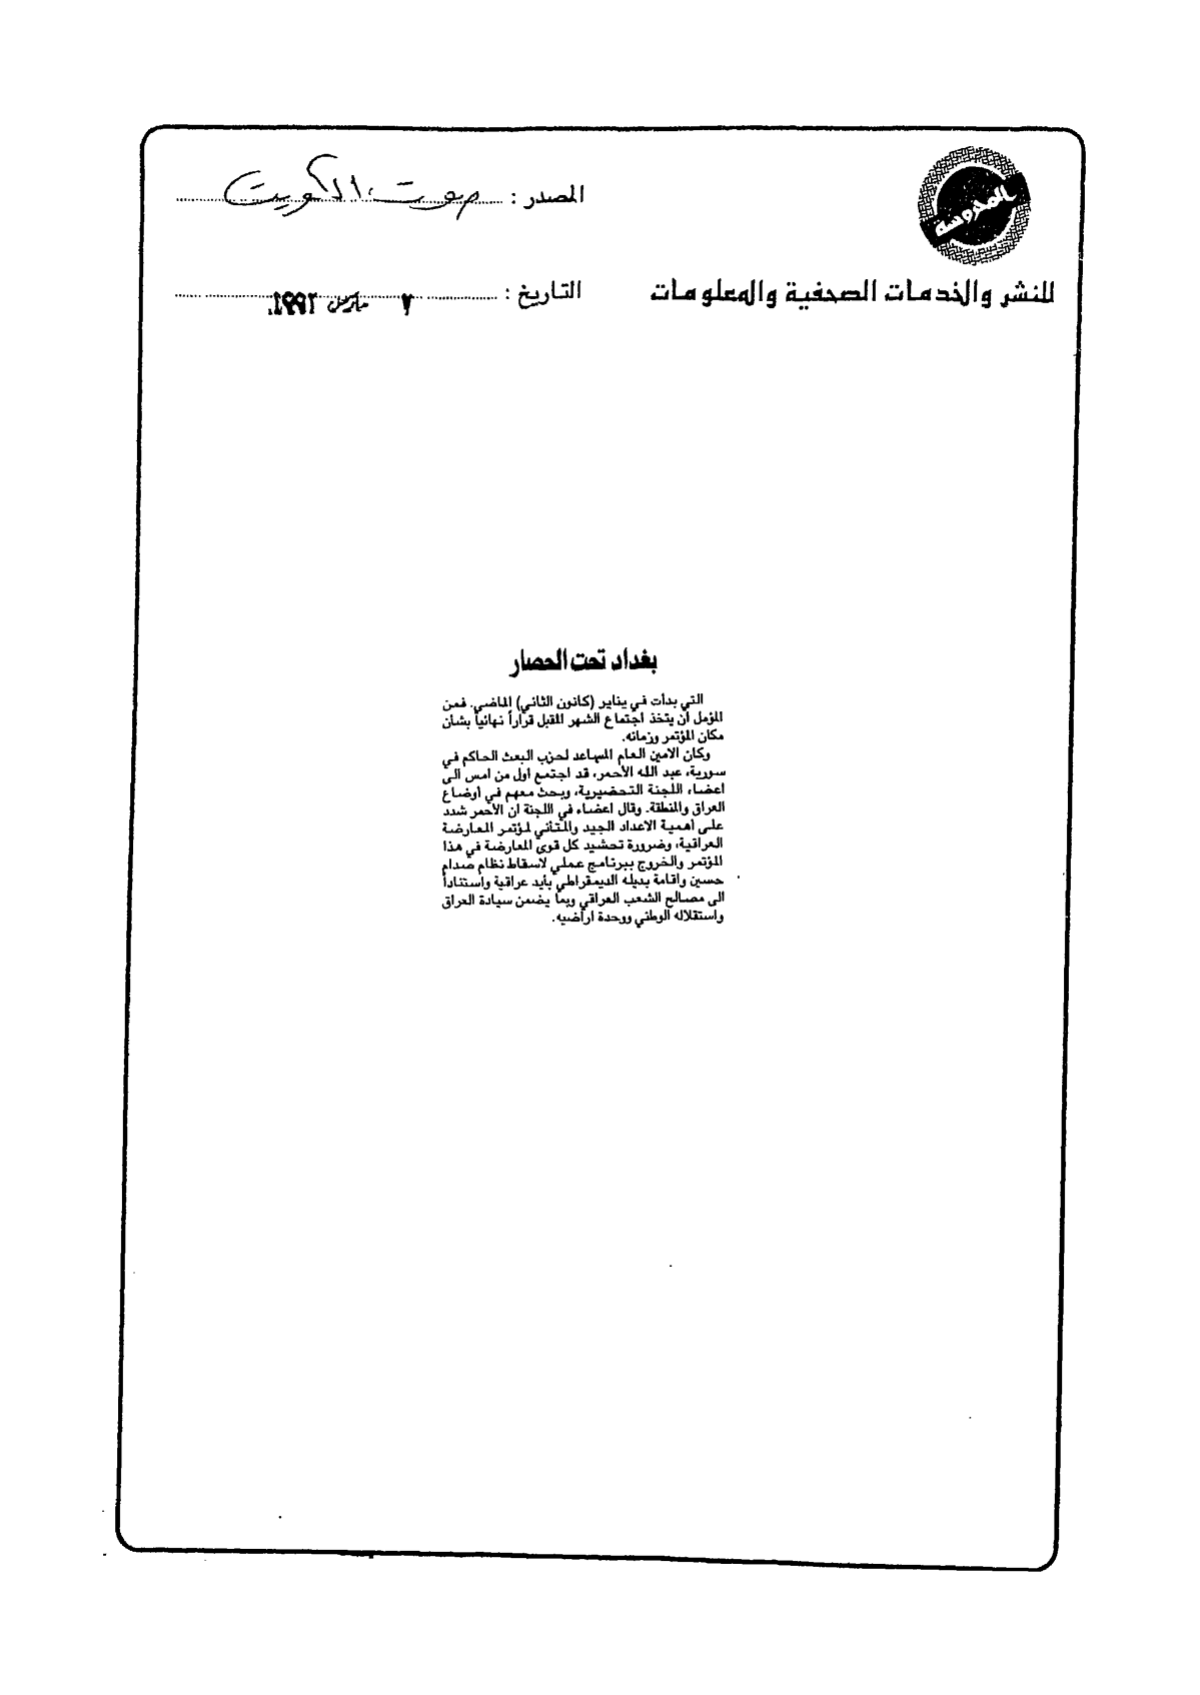 المحروسة
للنشر والخدمات الصحفية والمعلومات
المصدر : صوت الكويت
التاريخ : ٧ مارس ١٩٩٢
بغداد تحت الحصار
التي بدأت في يناير (كانون الثاني) الماضي. فمن
المؤمل أن يتخذ اجتماع الشهر المقبل قراراً نهائياً بشأن
مكان المؤتمر وزمانه.
وكان الامين العام المساعد لحزب البعث الحاكم في
سورية، عبد الله الأحمر، قد اجتمع اول من امس الى
اعضاء اللجنة التحضيرية، وبحث معهم في أوضاع
العراق والمنطقة. وقال اعضاء في اللجنة ان الأحمر شدد
على اهمية الاعداد الجيد والمتأني لمؤتمر المعارضة
العراقية، وضرورة تحشيد كل قوى المعارضة في هذا
المؤتمر والخروج ببرنامج عملي لاسقاط نظام صدام
حسين واقامة بديله الديمقراطي بأيد عراقية واستناداً
الى مصالح الشعب العراقي وبما يضمن سيادة العراق
واستقلاله الوطني ووحدة اراضيه.